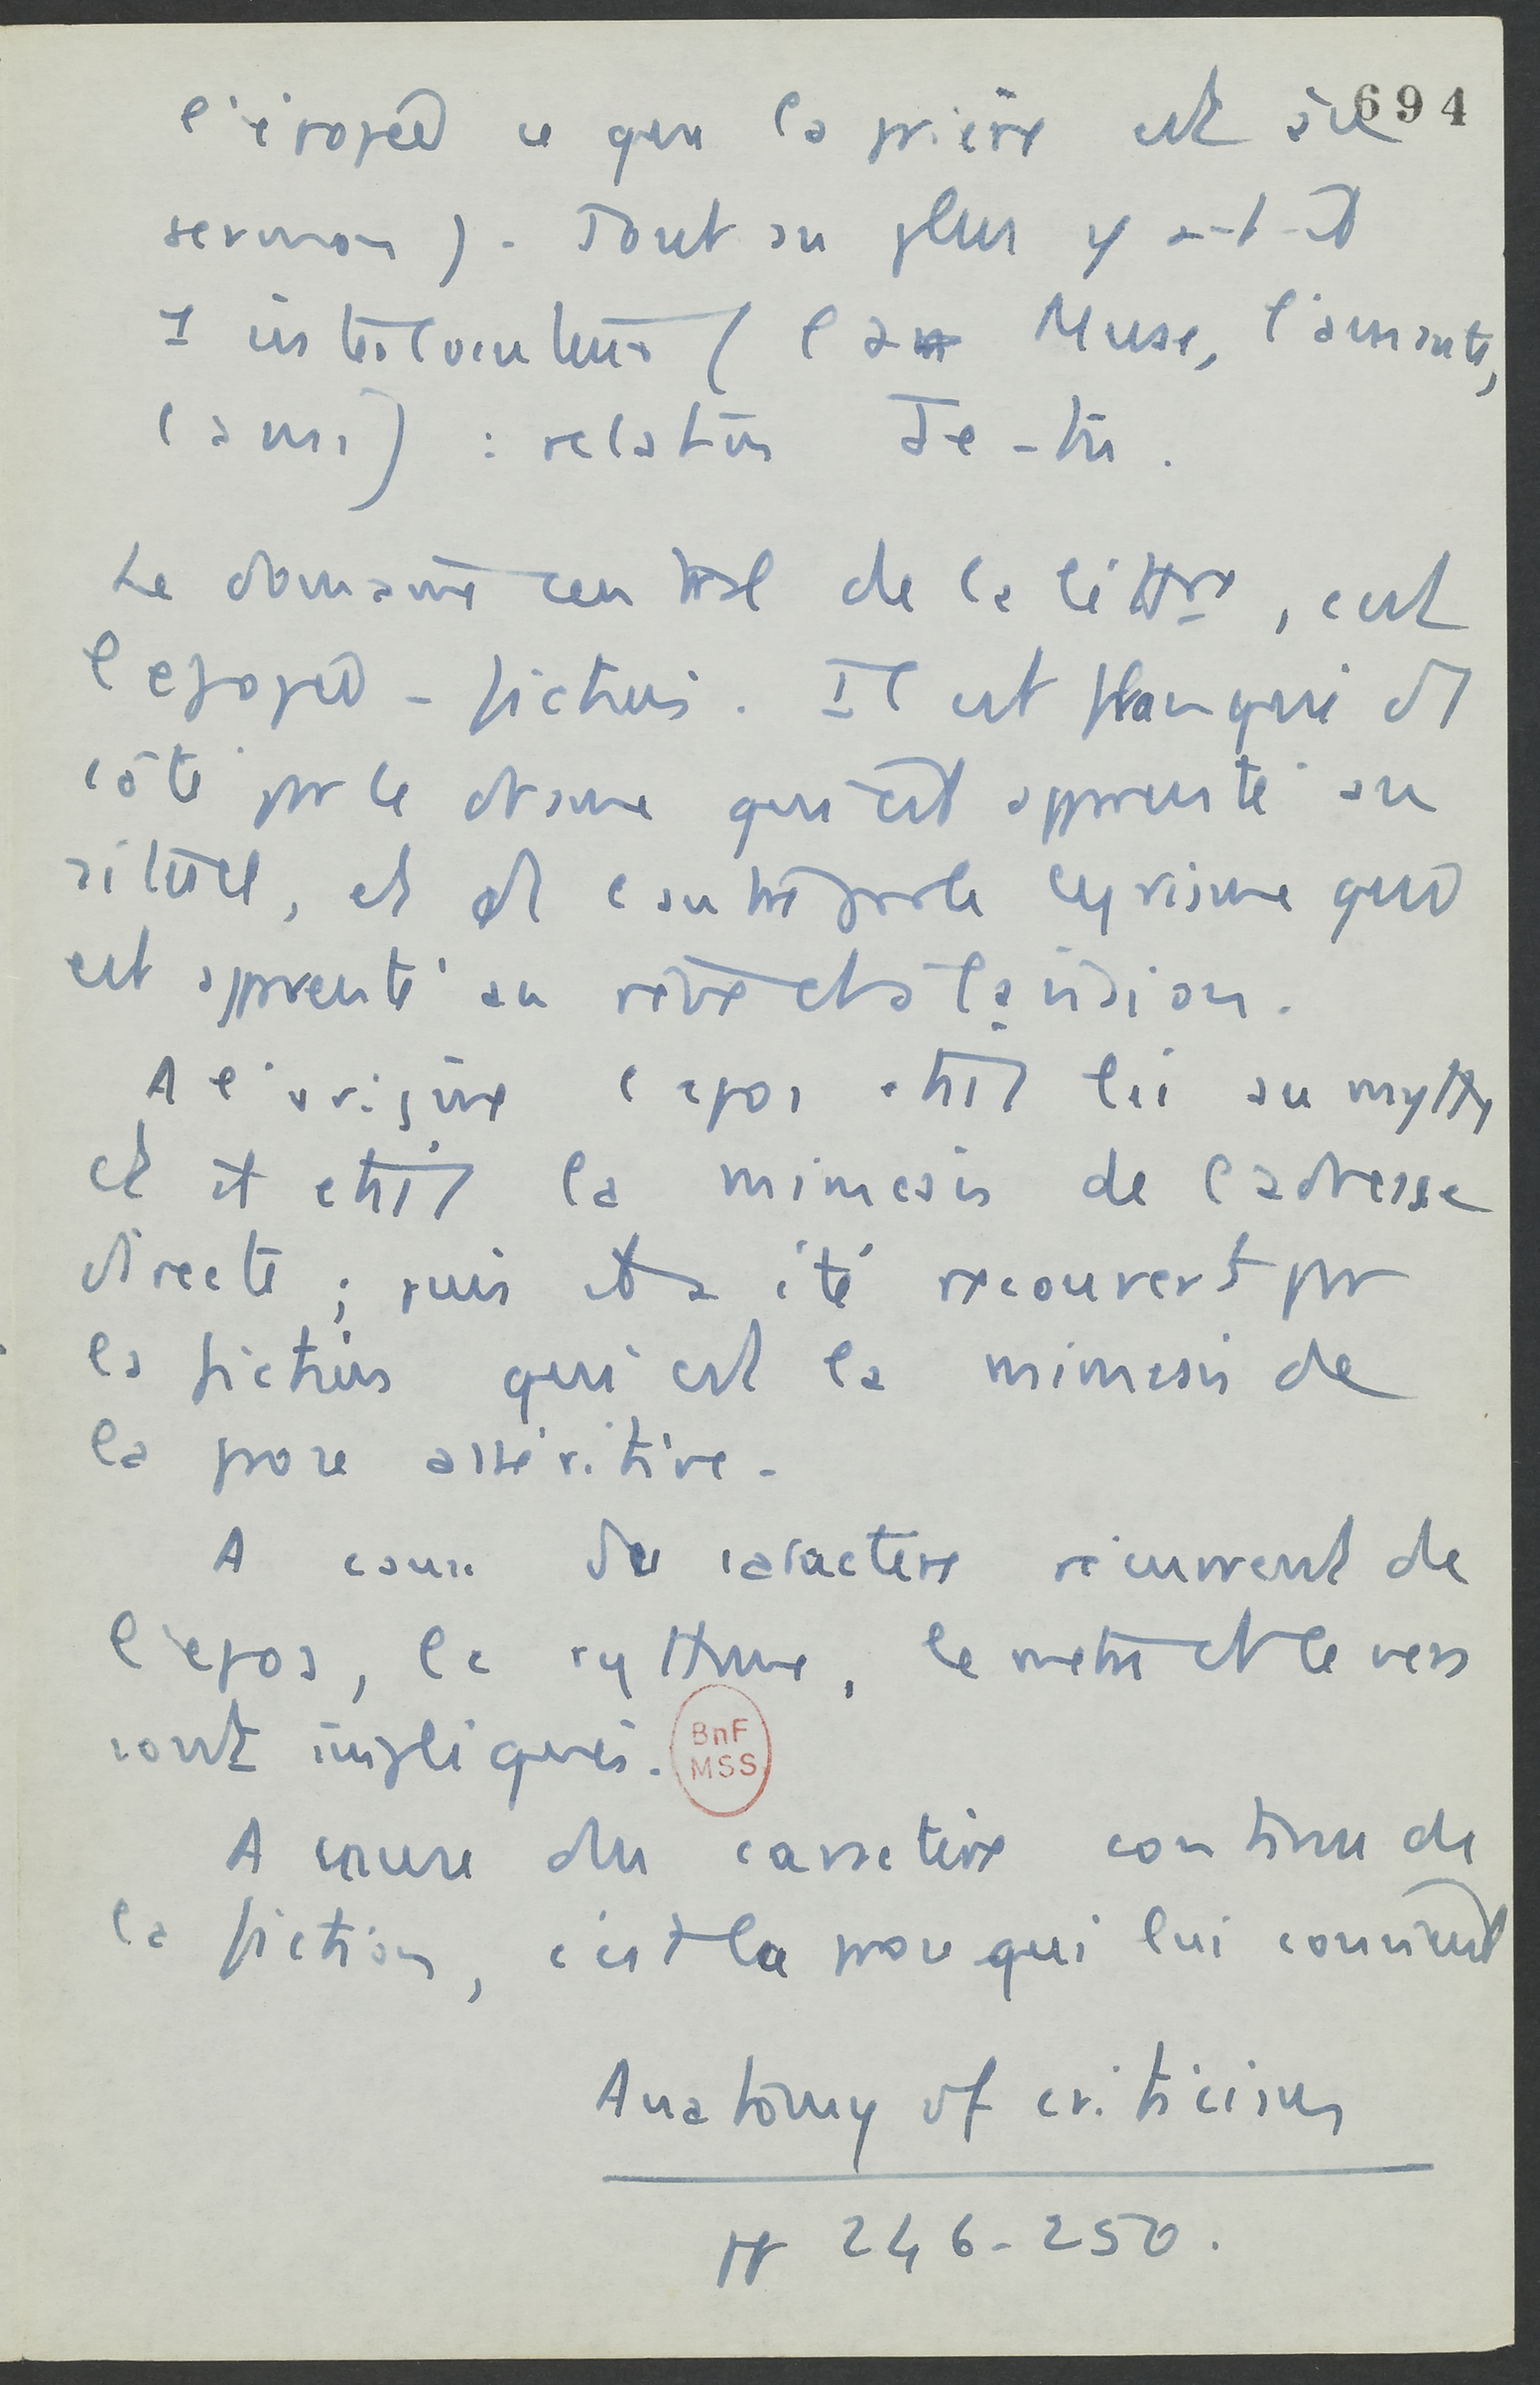 694
l'épopée ce que la prière est au
sermon). Tout au plus y a-t-il
1 interlocuteur (la Muse, l'amante,
l'ami) : relation Je-tu.
Le domaine central de la littre, c'est
l'epopée-fiction. Il est flanqué d'1
côté par le drame qui est apparenté au
rituel, et d'1 autre par le lyrisme qui
est apparenté au rêve et à la vision.
A l'origine l'epos était lié au mythe
et il était la mimesis de l'adresse
directe ; puis il a été recouvert par
la fiction qui est la mimesis de
la prose assertive.
A cause du caractère récurrent de
l'epos, le rythme, le mètre et le vers
sont impliqués.
BnF
MSS
A cause du caractère continu de
la fiction, c'est la prose qui lui convient
Anatomy of criticism
pp 246-250.